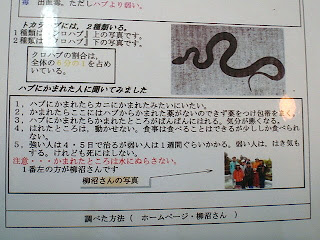 毒 出血毒。ただしハブより弱い。
トカラハブには、2種類いる。
1種類は『シロハブ』上の写真です。
2種類は『クロハブ』下の写真です。
クロハブの割合は、
全体の5分の1を占め
ている。
ハブにかまれた人に聞いてみました
1、ハブにかまれたらカニにかまれたみたいにいたい。
2、かまれたらここにはハブからかまれた薬がないのできず薬をつけ包帯をまく。
3、ハブにかまれたらかまれたところがぱんぱんにはれる。気分が悪くなる。
4、はれたところは、動かせない。食事は食べることはできるが少ししか食べられ
ない。
5、強い人は4・5日で治るが弱い人は1週間ぐらいかかる。弱い人は、はき気も
する。けれども死にはしない。
注意・・・かまれたところは水にぬらさない。
1番左の方が柳沼さんです
柳沼さんの写真
調べた方法（ ホームページ・柳沼さん ）